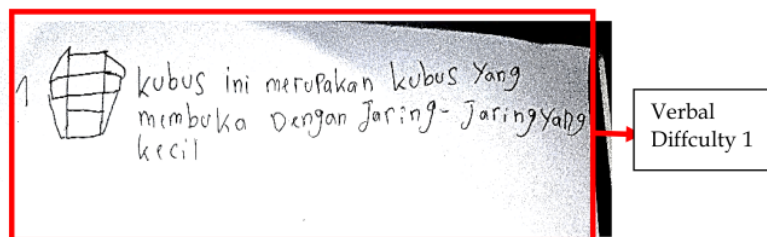 1 kubus ini merupakan kubus yang
membuka Dengan Jaring-Jaring yang
kecil
Verbal
Diffculty 1